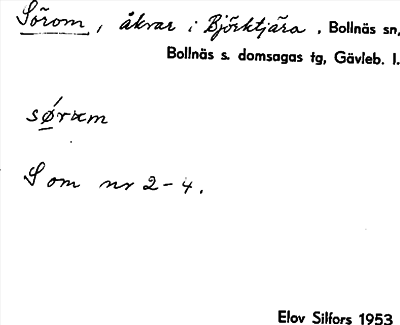 Sörom, åkrar i Björktjära, Bollnäs sn,
Bollnäs s. domsagas tg, Gävleb. l.
sǿrɯm
S om nr 2-4.
Elov Silfors 1953